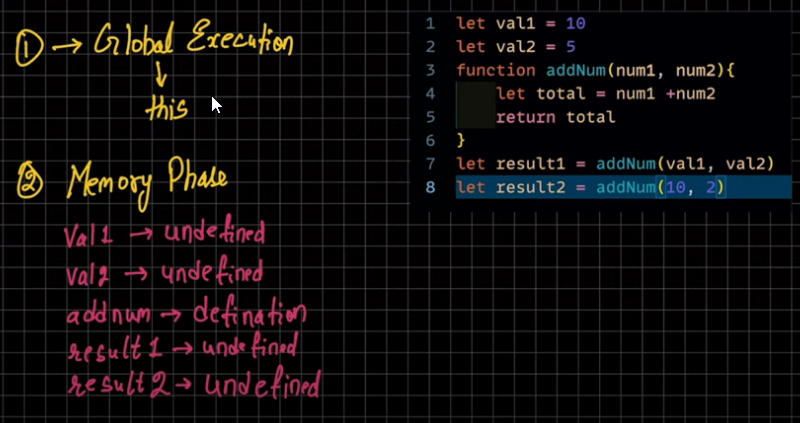 ① → Global Execution
↓
this
② Memory Phase
Val1 → undefined
val2 → undefined
addnum → defination
result1 → undefined
result2 → undefined
1 let val1 = 10
2 let val2 = 5
3 function addNum(num1, num2){
4 let total = num1 +num2
5 return total
6 }
7 let result1 = addNum(val1, val2)
8 let result2 = addNum(10, 2)